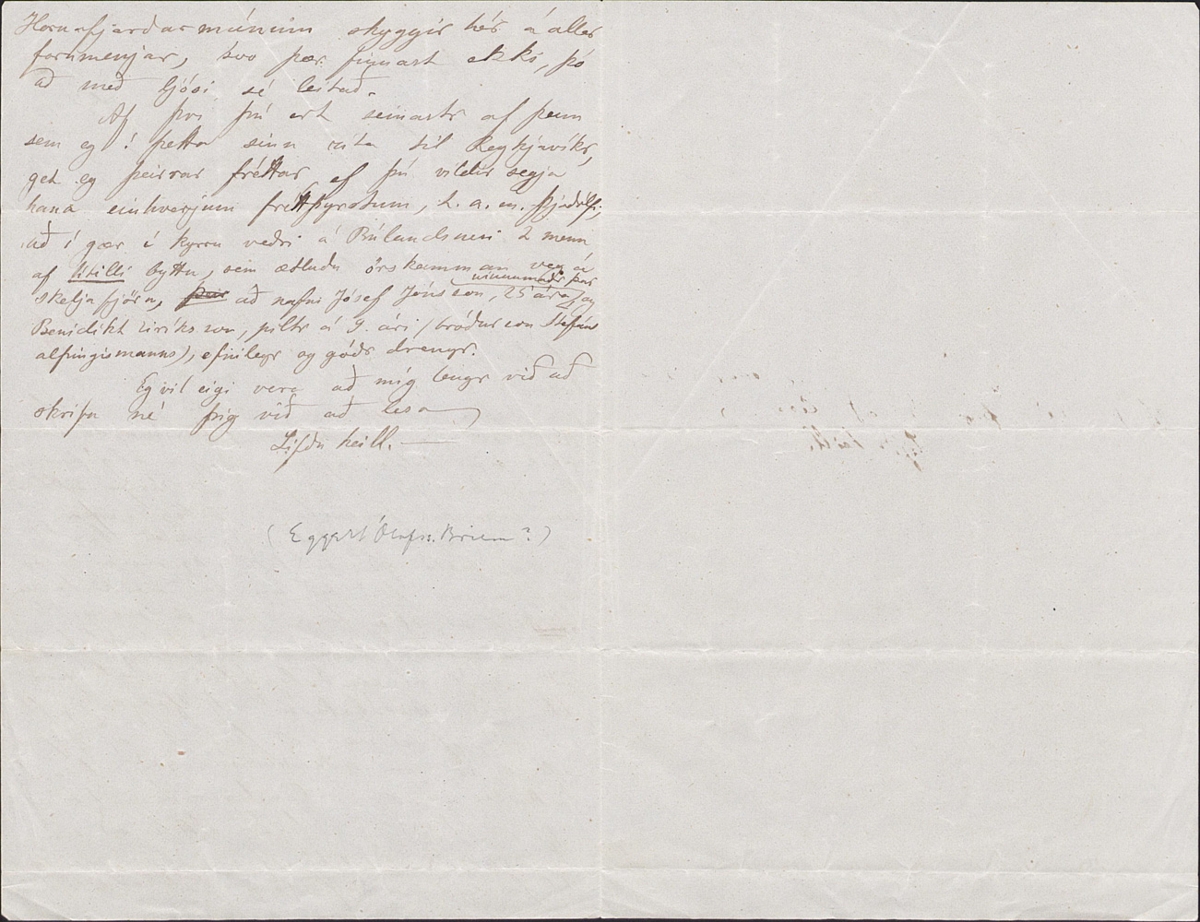 Hornafjarðarmúnum skyggir hér á allar
fornmenjar, svo þær finnast ekki, þó
að með ljósi sé leitað.
Af því þú ert seinastr af þeim
sem eg í þetta sinn rita til Reykjavíkr,
get eg þeirrar fréttar ef þú vildir segja
hana einhverjum fréttþyrstum, t. a. m. Þjóðólfi,
að í gær í kyrru veðri á Búlandsnesi 2 menn
af lítilli byttu, sem ætluðu örskamman veg á
skeljafjöru, þeir að nafni Jósef Jónsson, vinnumaðr þar 25 ára, og
Benidikt Eiríksson, piltr á 9. ári (bróðurson Stefáns
alþingismanns), efnilegr og góðr drengr.
Eg vil eigi vera að mig lengr við að
skrifa né þig við að lesa
Lifðu heill.
(Eggert Ólafss. Briem?)